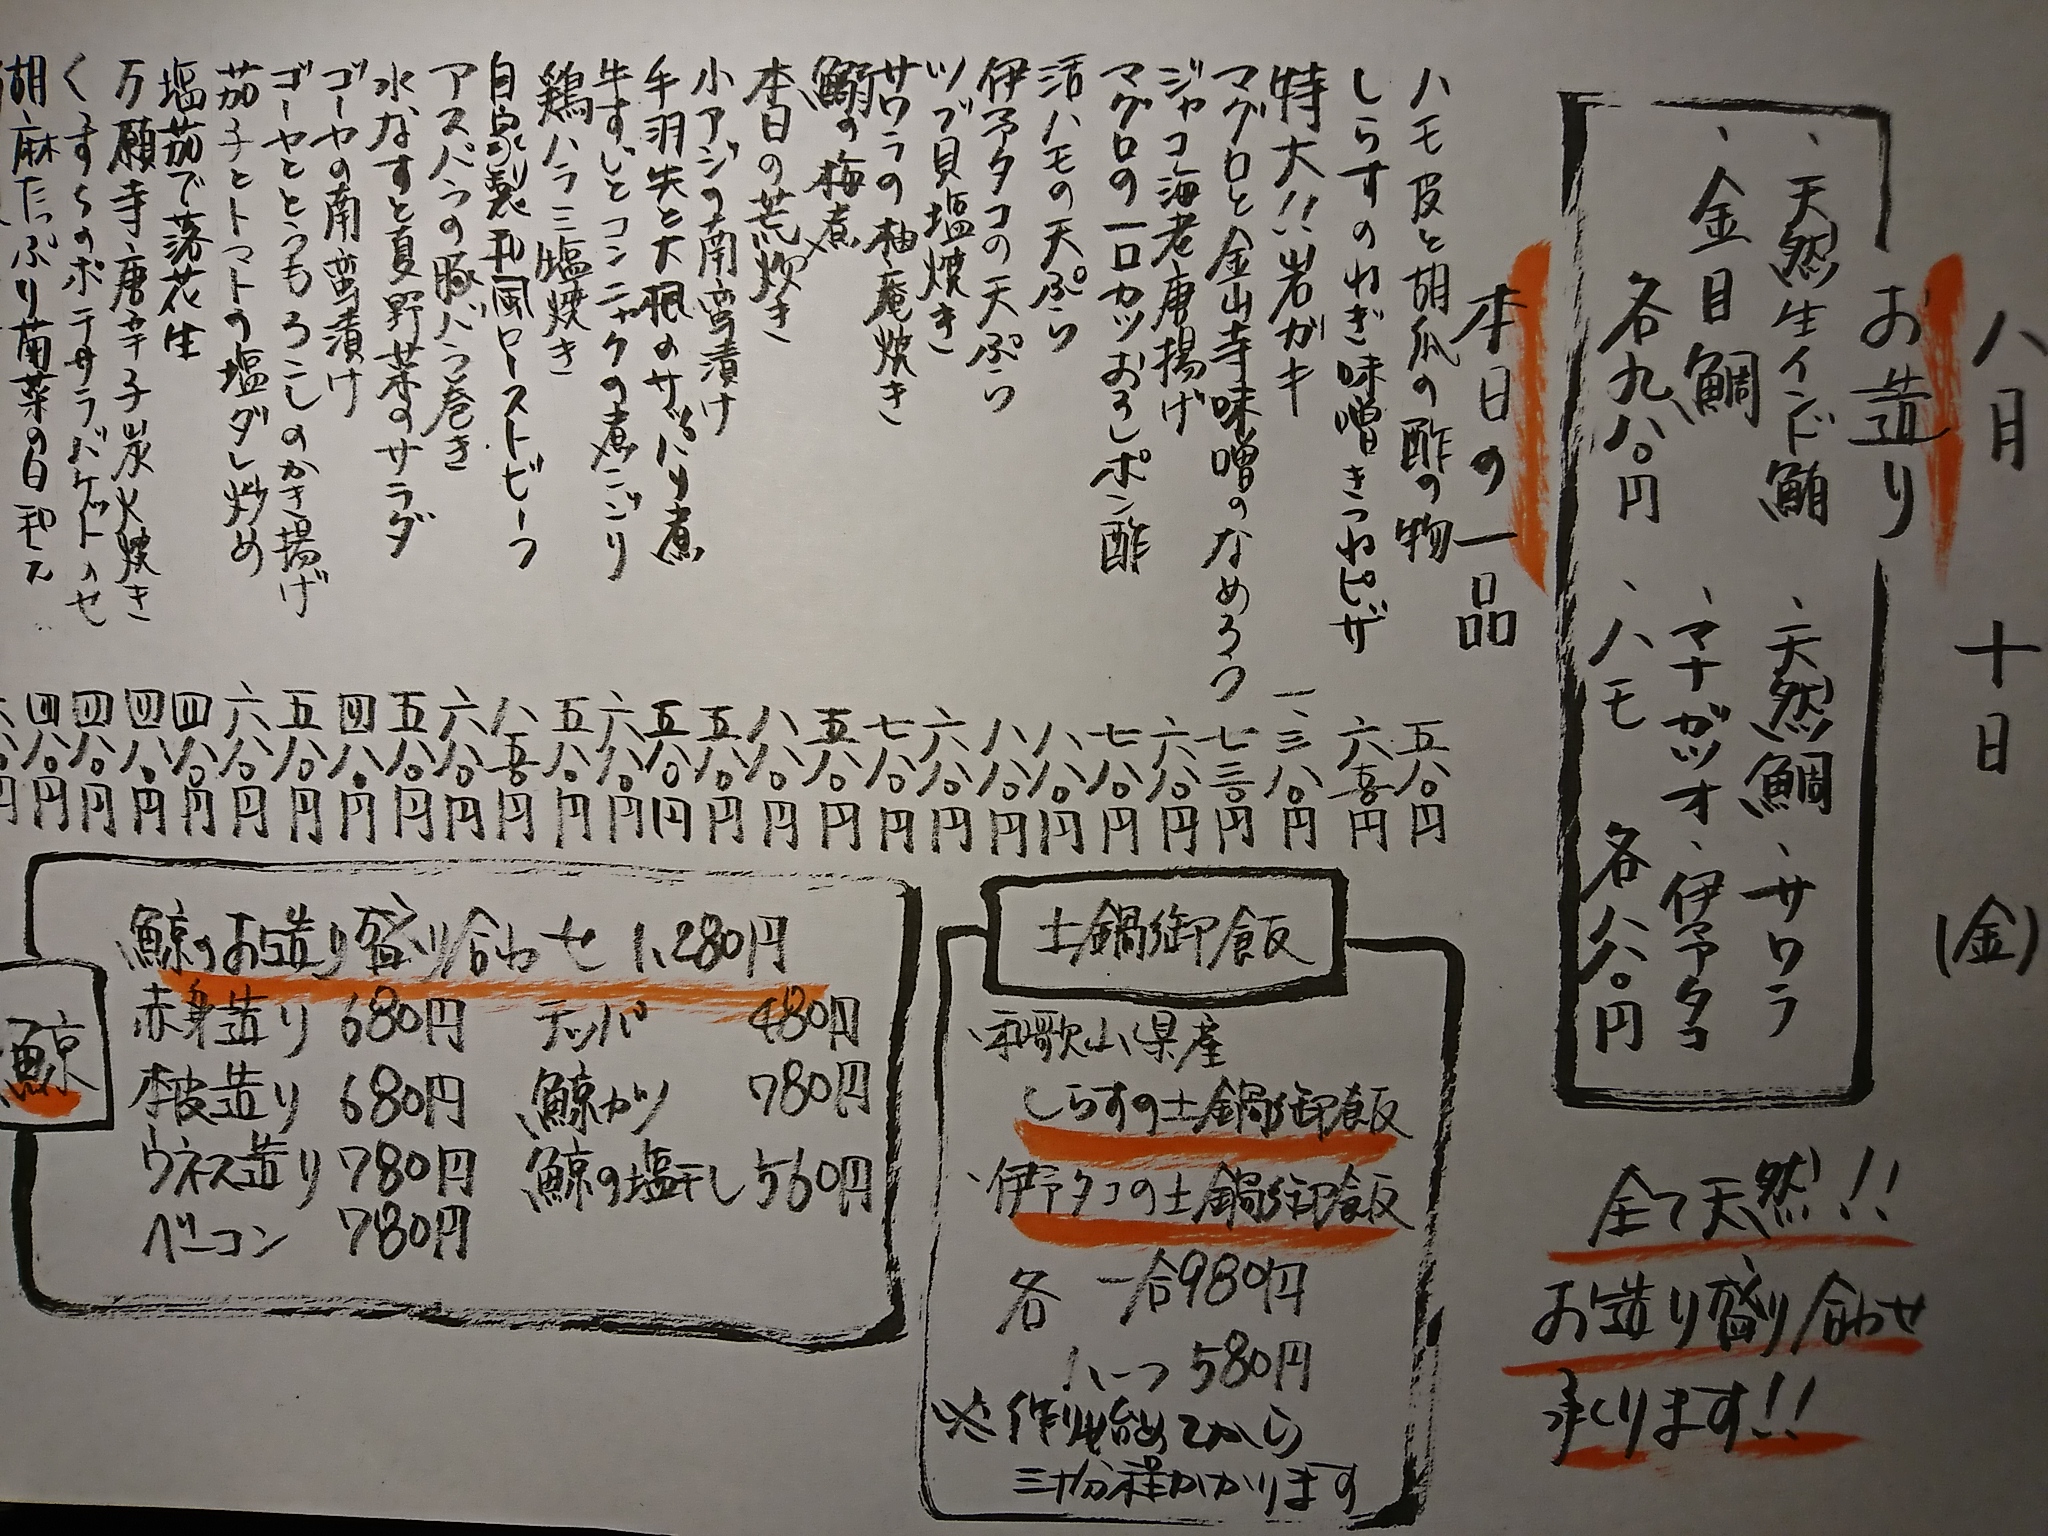 八月 十日 (金)
お造り
、天然生インド鮪 、天然鯛 、サワラ
、金目鯛 、マナガツオ 、伊予タコ
各九八〇円 、ハモ 各八八〇円
全て天然!!
お造り盛り合わせ
承ります!!
本日の一品
ハモ皮と胡瓜の酢の物 五八〇円
しらすのねぎ味噌きつねピザ 六五〇円
特大!!岩ガキ 一、三八〇円
マグロと金山寺味噌のなめろう 七三〇円
ジャコ海老唐揚げ 六八〇円
マグロの一口カツおろしポン酢 七八〇円
活ハモの天ぷら 八八〇円
伊予タコの天ぷら 八八〇円
ツブ貝塩焼き 六八〇円
サワラの柚庵焼き 七八〇円
鰯の梅煮 五八〇円
本日の荒炊き 八八〇円
小アジの南蛮漬け 五八〇円
手羽先と大根のサッパリ煮 五八〇円
牛すじとコンニャクの煮こごり 六八〇円
鶏ハラミ塩焼き 五八〇円
自家製和風ローストビーフ 八五〇円
アスパラの豚バラ巻き 六八〇円
水なすと夏野菜のサラダ 五八〇円
ゴーヤの南蛮漬け 四八〇円
ゴーヤととうもろこしのかき揚げ 五八〇円
茄子とトマトの塩ダレ炒め 六八〇円
塩茹で落花生 四八〇円
万願寺唐辛子炭火焼き 四八〇円
くずしのポテサラバケットのせ 四八〇円
胡麻たっぷり菊菜の白和え 四八〇円
土鍋御飯
和歌山県産
しらすの土鍋御飯
、伊予タコの土鍋御飯
各 一合980円
ハーフ 580円
※作り始めてから
三十分程かかります
鯨
鯨のお造り盛り合わせ 1,280円
赤身造り 680円 テッパ 480円
本皮造り 680円 鯨カツ 780円
ウネス造り 780円 鯨の塩干し 560円
ベーコン 780円